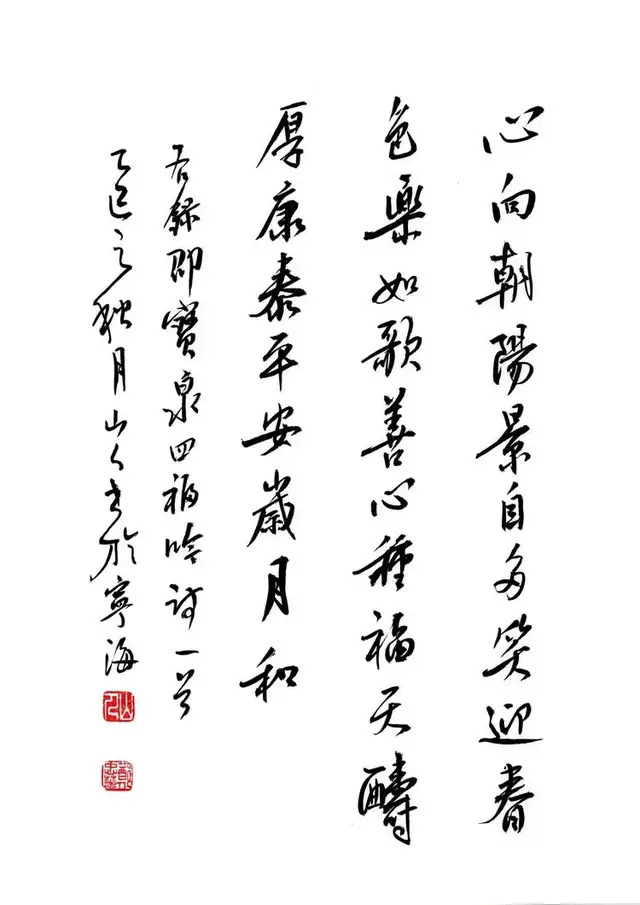 心向朝陽景自多笑迎春
色樂如歌善心種福天酬
厚康泰平安歲月和
右録邵寶泉四福吟詩一首
乙巳之秋月山人書於寧海
山人